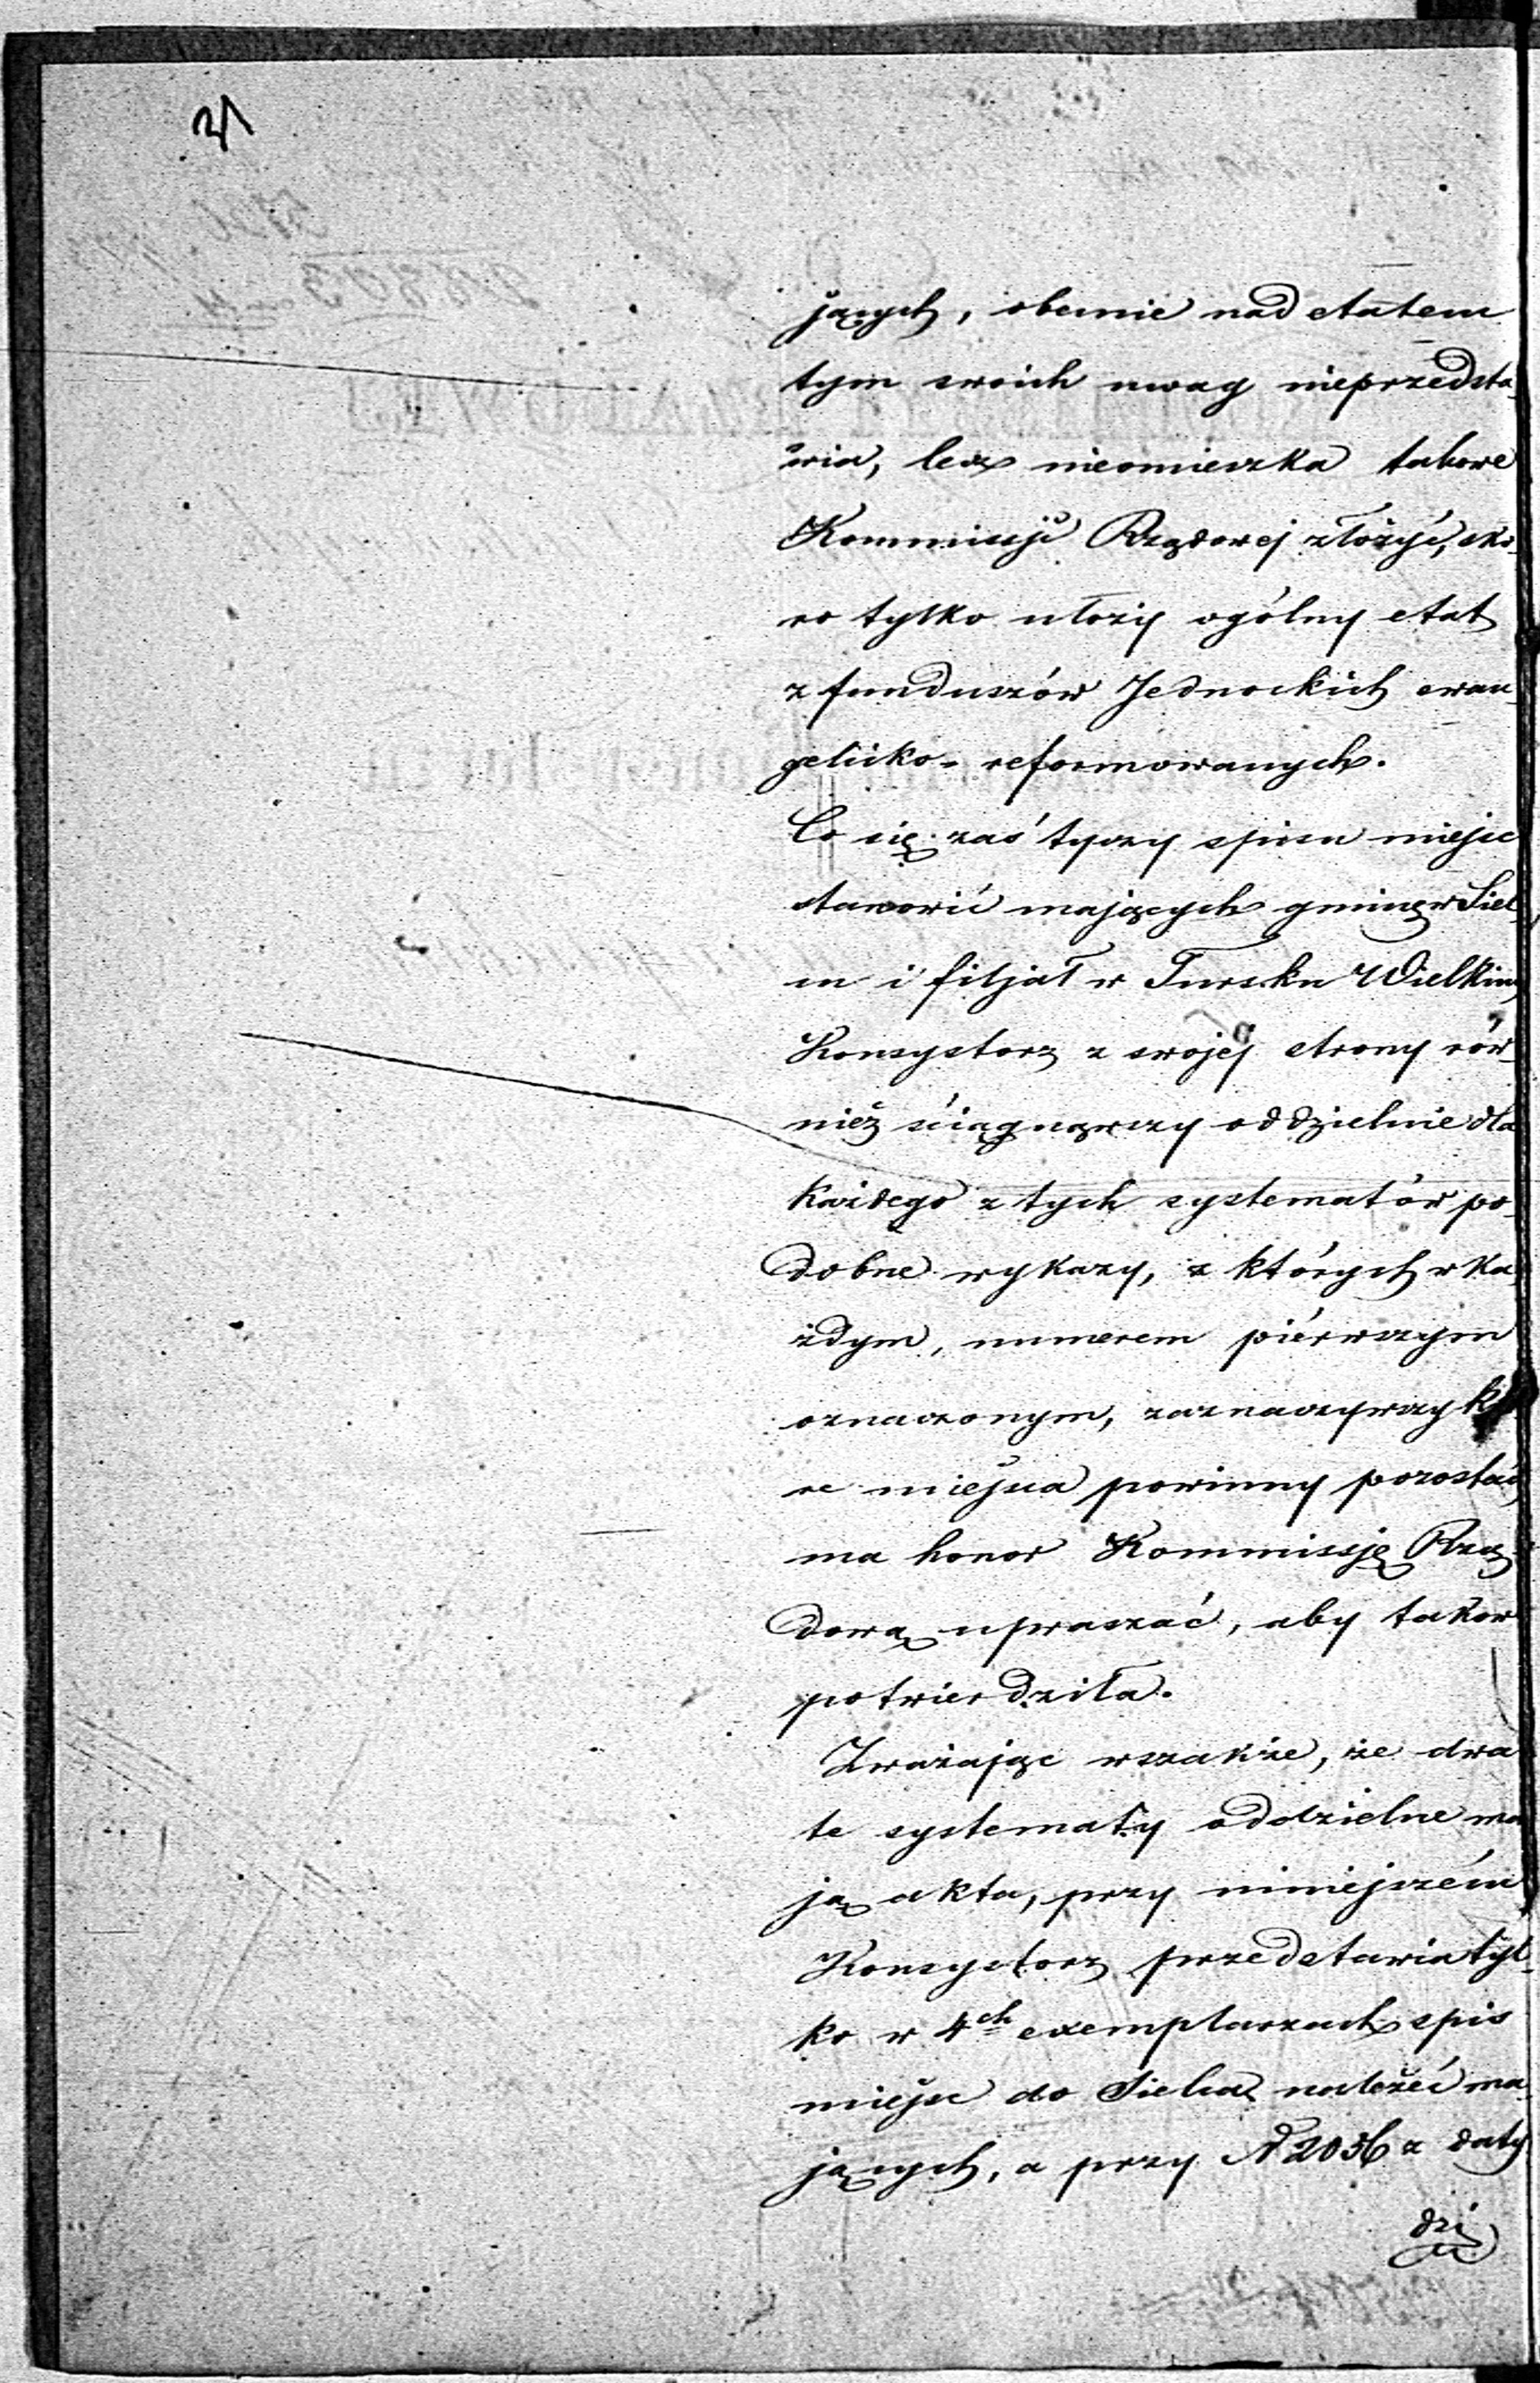 jących, obecnie nad etatem
tym swoich uwag nieprzedsta-
wia, lecz nieomieszka takowe
Kommissji Rządowej złożyć, sko-
ro tylko ułoży ogólny etat
z funduszów Jednockich ewan-
gelicko-reformowanych.
Co się zaś tyczy spisu miejsc
stanowić mających gminę w Siel-
cu i filjał w Tursku Wielkim
Konsystorz z swojej strony rów-
nież ściągnąwszy oddzielnie dla
każdego z tych systematów po-
dobne wykazy, z których w ka-
żdym, numerem piérwszym
oznaczonym, zaznaczywszy któ
re miejsca powinny pozostać,
ma honor Kommissję Rzą-
dową upraszać, aby takow
potwierdziła.
Zważając wszakże, że dwa
te systematy oddzielne ma
ją akta, przy niniejszém
Konsystorz przedstawia tyl-
ko w 4ch exemplarzach spis
miejsc do Sielca należeć ma
jących, a przy N 2036 z daty
dzi